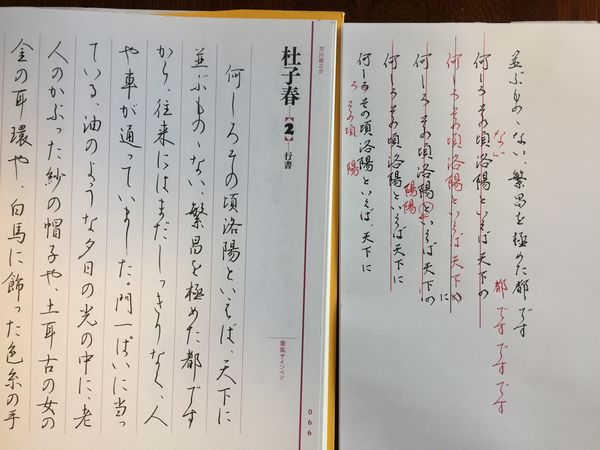 芥川龍之介
杜子春【2】行書
何しろその頃洛陽といえば、天下に
並ぶものゝない、繁昌を極めた都です
から、往来にはまだしっきりなく、人
や車が通っていました。門一ぱいに当っ
ている、油のような夕日の光の中に、老
人のかぶった紗の帽子や、土耳古の女の
金の耳環や、白馬に飾った色糸の手
筆風サインペン
066
並ぶものゝない、繁昌を極めた都です
ない 都です です です
何しろその頃洛陽といえば天下の
何しろその頃洛陽といえば天下の
に
何しろその頃洛陽といえば天下の
陽陽
何しろその頃洛陽といえば天下に
何しろその頃洛陽といえば、天下に
ろ その頃 陽